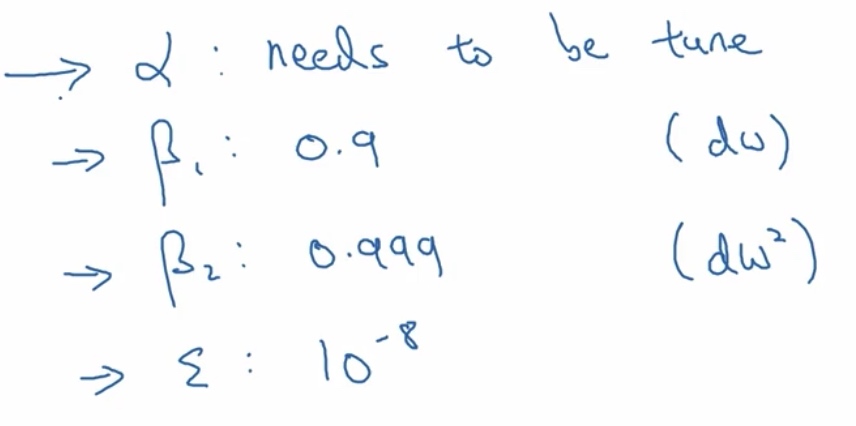 → α : needs to be tune
→ β₁ : 0.9 (dw)
→ β₂ : 0.999 (dw²)
→ ε : 10⁻⁸